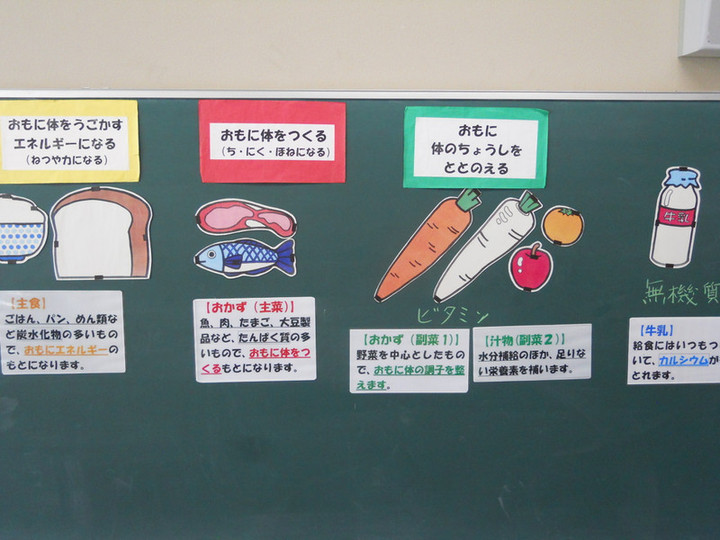 おもに体をうごかす
エネルギーになる
(ねつや力になる)
おもに体をつくる
(ち・にく・ほねになる)
おもに
体のちょうしを
ととのえる
牛乳
ビタミン
無機質
【主食】
ごはん、パン、めん類な
ど炭水化物の多いもの
で、おもにエネルギーの
もとになります。
【おかず(主菜)】
魚、肉、たまご、大豆製
品など、たんぱく質の多
いもので、おもに体をつ
くるもとになります。
【おかず(副菜1)】
野菜を中心としたもの
で、おもに体の調子を整
えます。
【汁物(副菜2)】
水分補給のほか、足りな
い栄養素を補います。
【牛乳】
給食にはいつもつ
いて、カルシウムが
とれます。